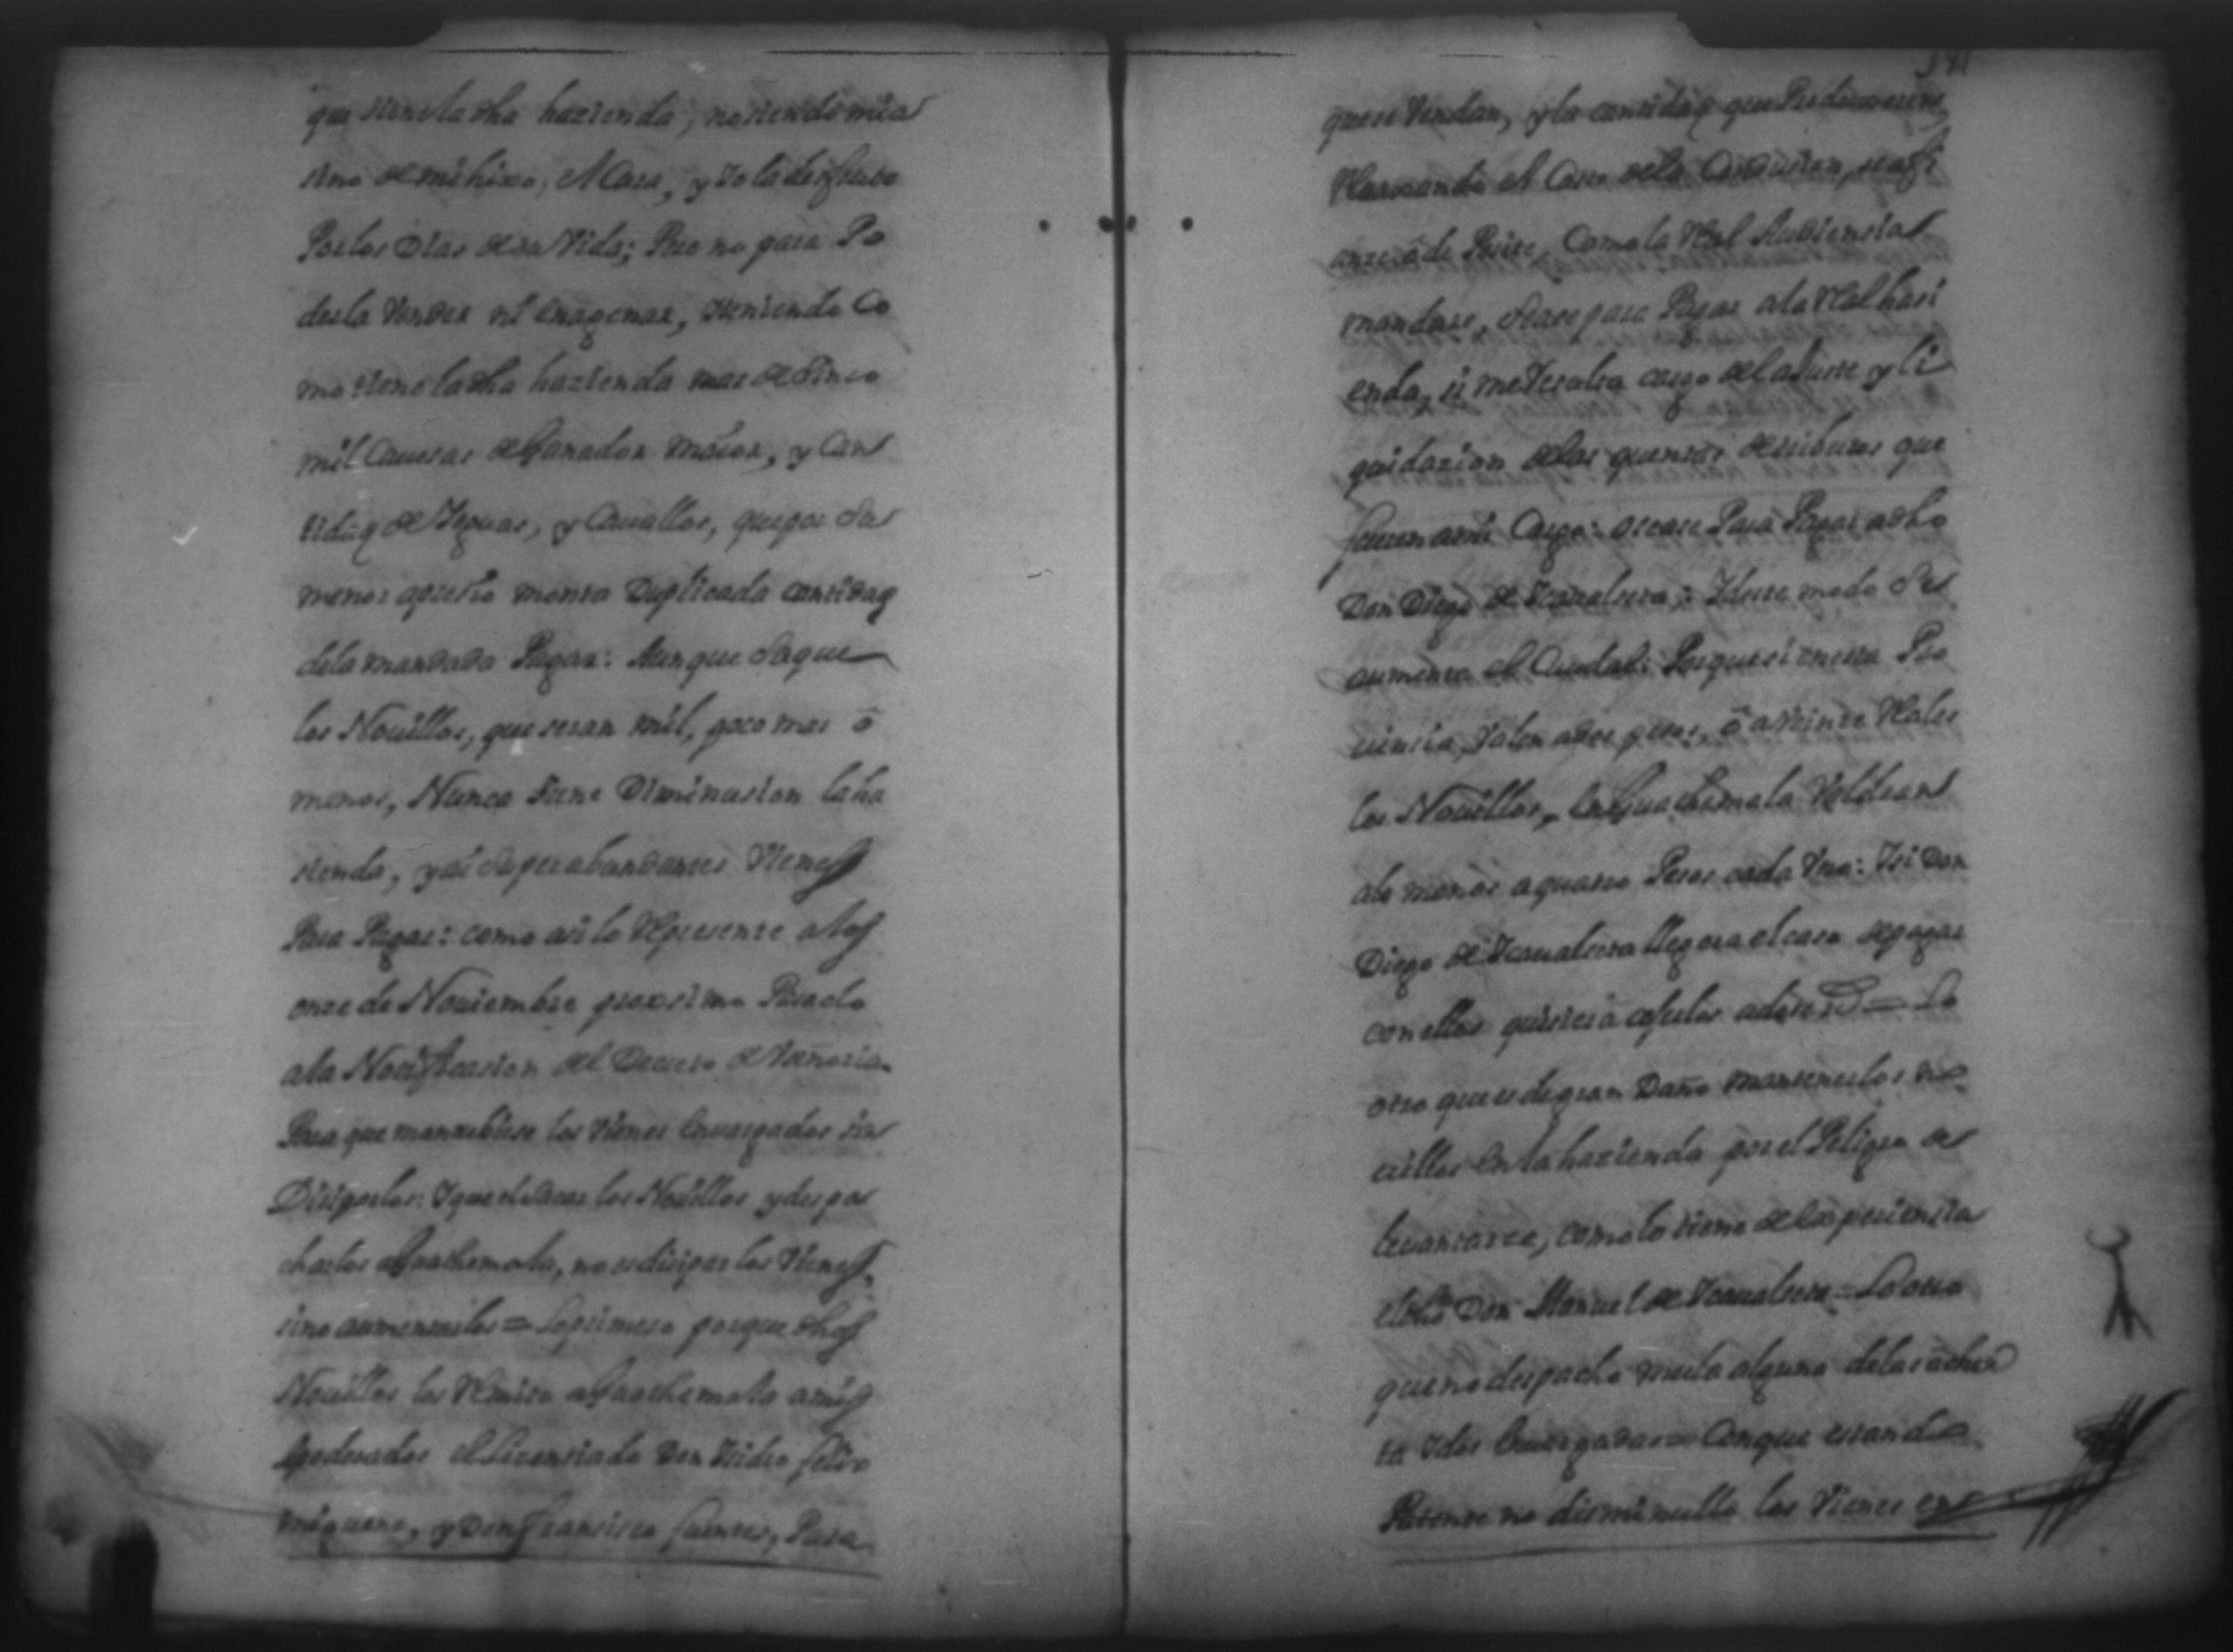 que tiene la dha hazienda, no siendo mia
sino de mi hixo, el Casa, y Yo la disfruto
Por los Dias de su Vida; Pero no para Po
derla Vender ni enagenar, teniendo Co
mo tiene la dha hazienda mas de Sinco
mil Cauesas de Ganados maior, y Can
tidad de Yeguas, y Cauallos, que por su
menor apresio monta Duplicada cantidad
de la mandada Pagar: Aunque saque
los Nouillos, que seran mil, poco mas ó
menos, Nunca tiene Diminusion la ha
sienda, y ai superabundantes Vienes
Para Pagar: como asi lo Represente a los
onze de Nouiembre proxsimo Pasado
a la Notificasion del Decreto de Vseñoria
Para que mantubiese los Vienes enuargados sin
Disiparlos: Y que el sacar los Nouillos y despa
charlos a Guathemala, no es disipar los Vienes,
sino aumentarlos = Lo primero porque dhos
Nouillos los Remito a Guathemala a mis
Apoderados el Lisensiado Don Ysidro felix
, y Don fransisco fuentes, Para
que se Vendan, y la cantidad que Produseren
el Caso de la , se afi
anze ó de Posite, Como la Rl Audiensia
mandare, ó sea para Pagar a la Rl hasi
enda, si me resulta cargo del ajuste y li
quidazion de las quentas de tributos que
fueron a mi Cargo: ó sease Para Pagar a dho
Don Diego de : Y de este modo se
aumenta el Caudal: Porque si en esta Pro
uincia, Valen a dos pesos, ó a Veinte Rales
los Nouillos, en Guathemala Valdran
a lo menos a quatro Pesos cada Vno: Y si Don
Diego de llegara el caso de pagar
con ellos quisiera coserlos a dose Rs = Lo
otro que es de gran Daño mantener los no
uillos en la hazienda por el Peligro de
leuantarze, como lo tiene de esperiensia
el dho Don Manuel de = Lo otro
que no despacho mula alguna de las ochen
ta Y dos enuargadas = Conque estando
Patente no disminullo los Vienes en